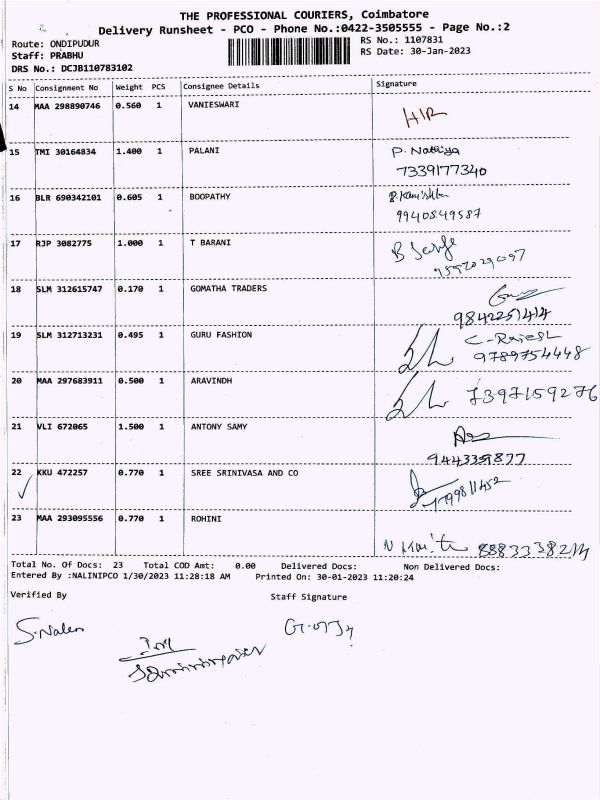 THE PROFESSIONAL COURIERS, Coimbatore
Delivery Runsheet - PCO - Phone No.:0422-3505555 - Page No.:2
Route: ONDIPUDUR
RS No.: 1107831
Staff: PRABHU
RS Date: 30-Jan-2023
DRS No.: DCJB110783102
S No Consignment No Weight PCS Consignee Details Signature
14 MAA 298890746 0.560 1 VANIESWARI
15 TMI 30164834 1.400 1 PALANI P. Nathiya
7339177340
16 BLR 690342101 0.605 1 BOOPATHY
9940849587
17 RJP 3082775 1.000 1 T BARANI
18 SLM 312615747 0.170 1 GOMATHA TRADERS
9842251414
19 SLM 312713231 0.495 1 GURU FASHION C-Rajesh
9789754448
20 MAA 297683911 0.500 1 ARAVINDH 7397159276
21 VLI 672065 1.500 1 ANTONY SAMY
9443359877
22 KKU 472257 0.770 1 SREE SRINIVASA AND CO
23 MAA 293095556 0.770 1 ROHINI
Total No. Of Docs: 23 Total COD Amt: 0.00 Delivered Docs: Non Delivered Docs:
Entered By :NALINIPCO 1/30/2023 11:28:18 AM Printed On: 30-01-2023 11:20:24
Verified By Staff Signature